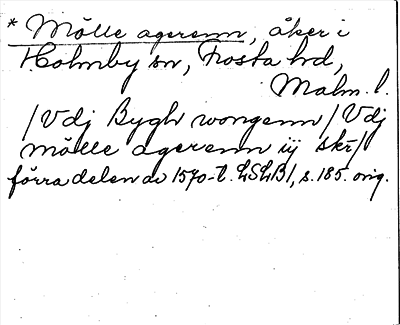 * Mölle agerenn, åker i
Holmby sn, Frosta hd,
Malm. l.
/Vdj Bygh wongenn/Vdj
mölle agerenn iij skr/
förra delen av 1570-t. LSLB1, s. 185. orig.